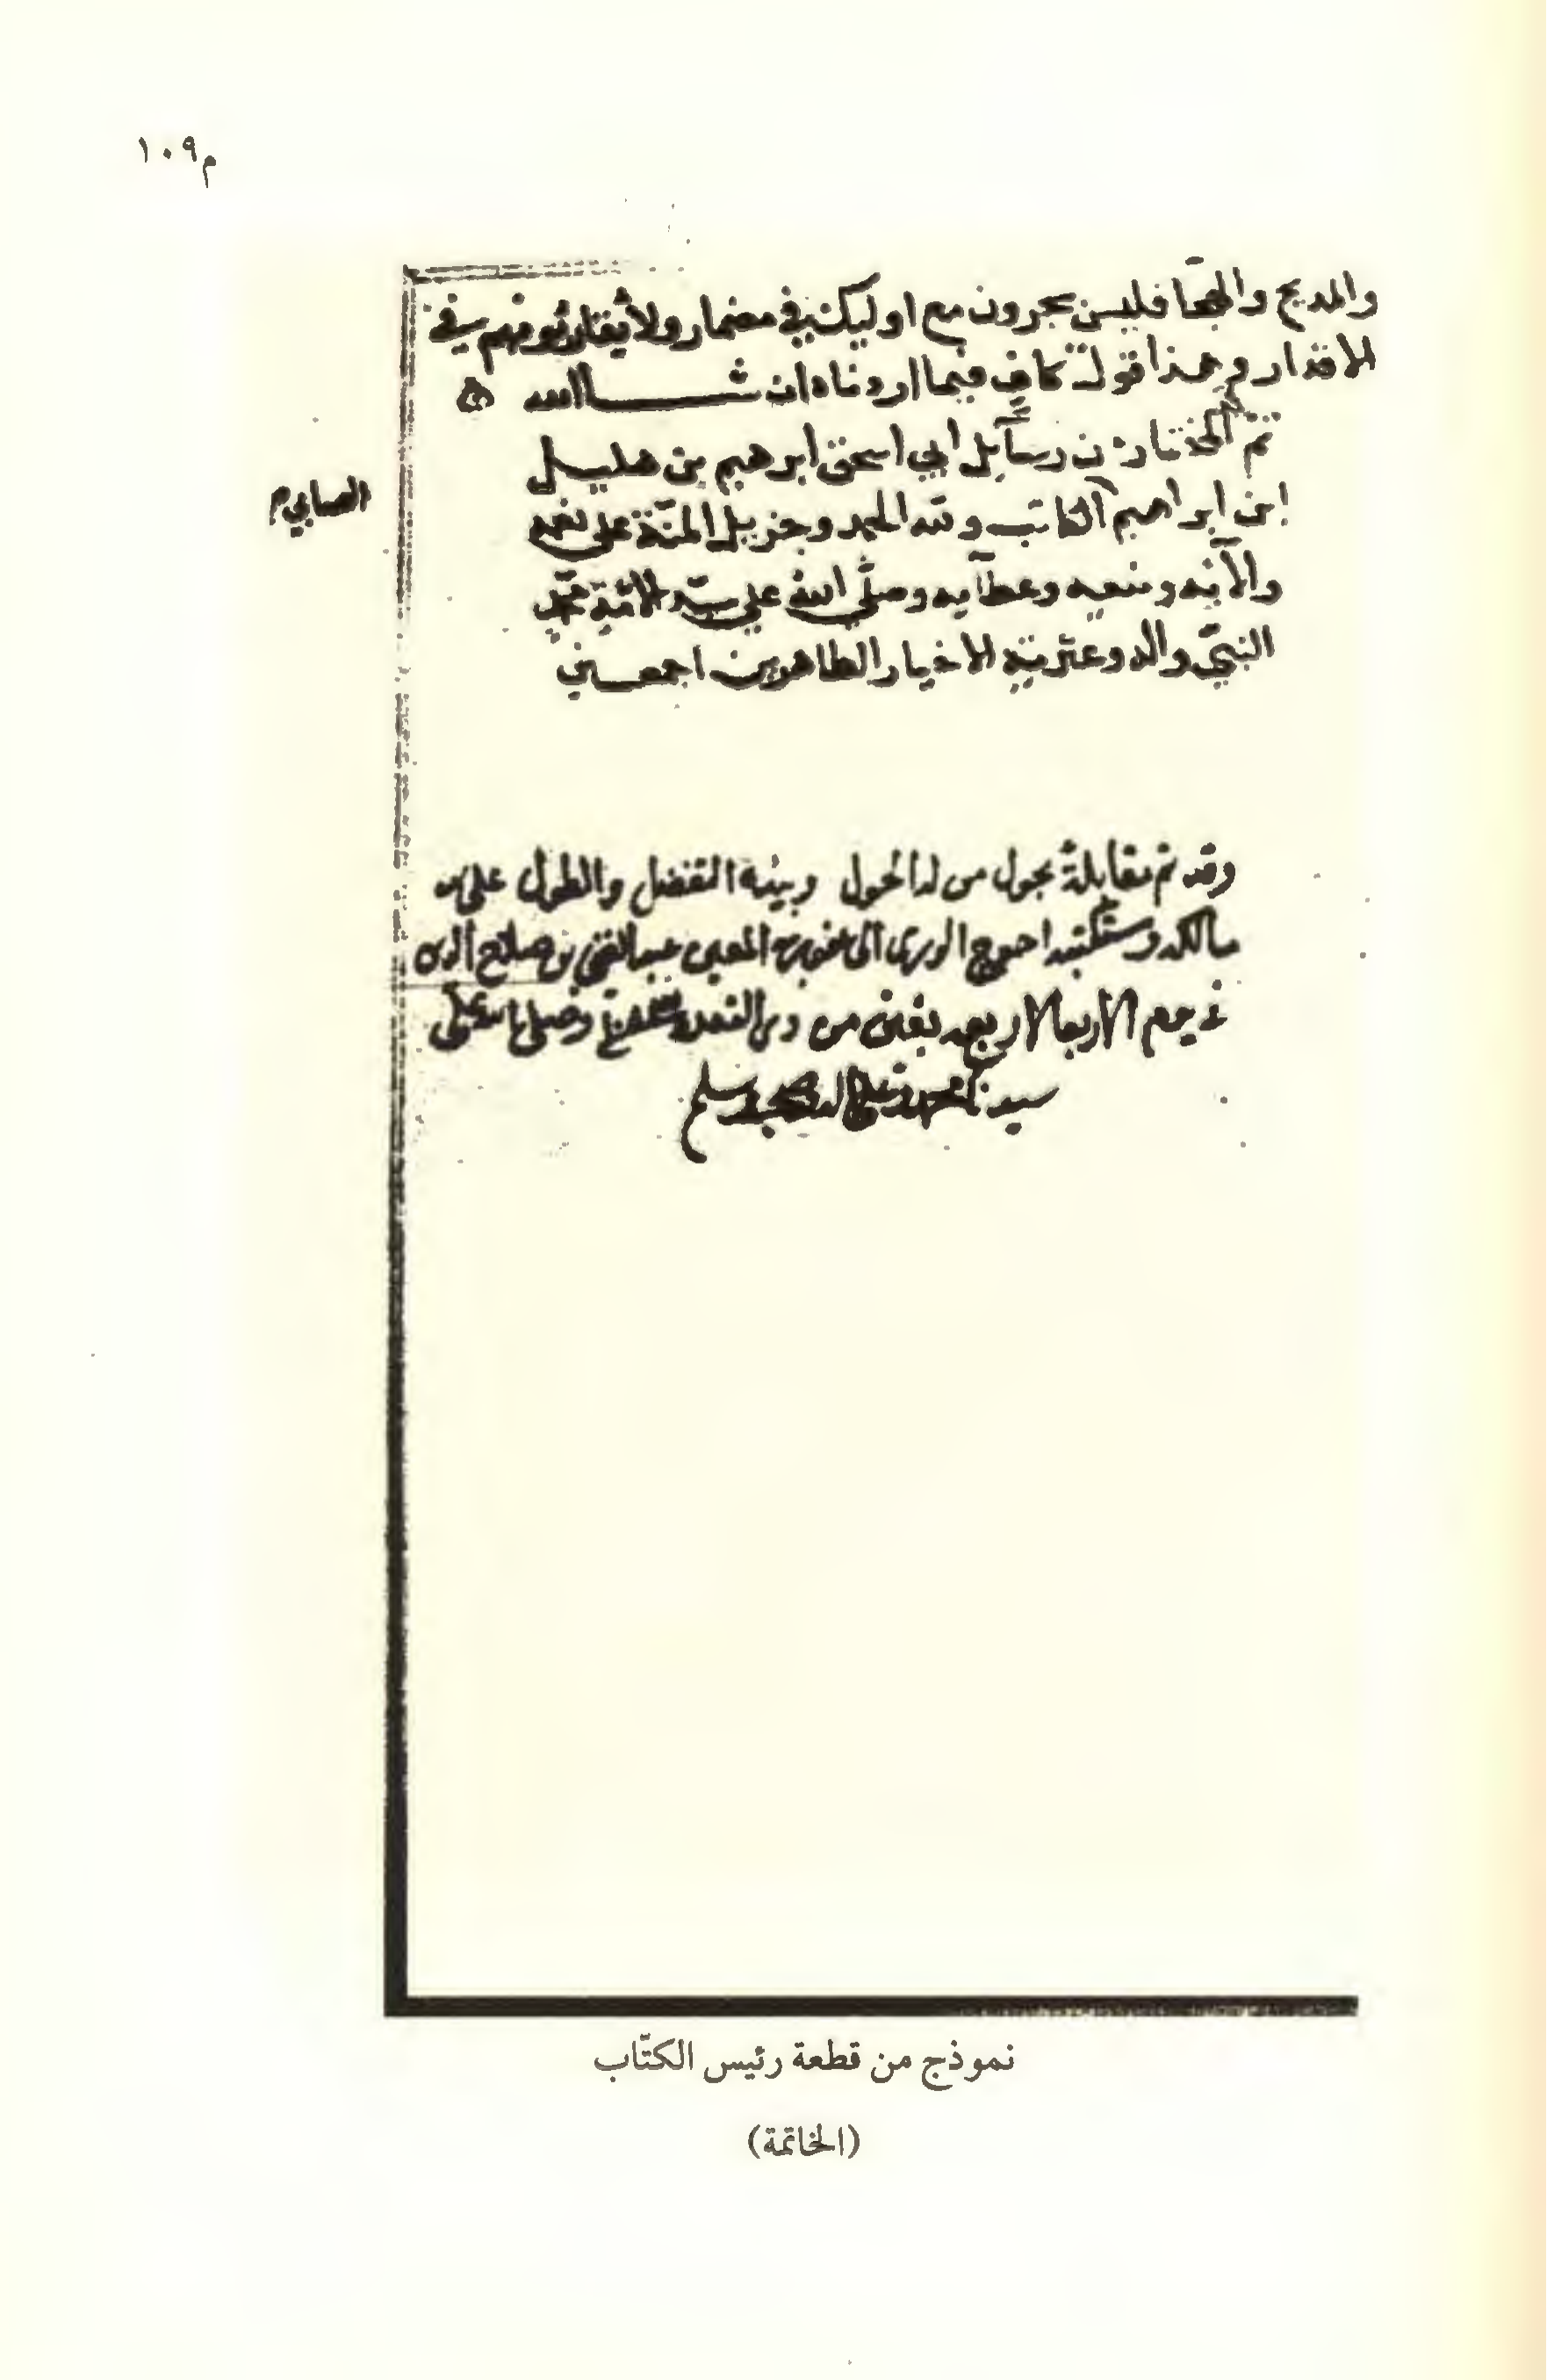 م١٠٩
والمديح والهجا فليس يجرون مع اوليك في مضمار ولا يقاربونهم في
الاقدار وهذا قول كاف فيما اردناه ان شا الله
تم المختار من رسآيل ابي اسحق ابرهيم بن هليل
ابن ابراهيم الكاتب ولله الحمد وجزيل المنّة على نعمه
الصابي م
والآيه ومنعه وعطآيه وصلّى الله على سيّد الامّة محمّد
النبيّ واله وعترته الاخيار الطاهرين اجمعين
وقد تم مقابلةً بحول من له الحول وبيده التفضل والطول على يد
مالكه ومستكتبه احوج الورى الى عفو ربه المعين عبد الغني بن صلاح الدين
في يوم الاربعا لاربعه بقين من ذي القعده وصلى الله على
سيدنا محمد وعلى اله وصحبه وسلم
نموذج من قطعة رئيس الكتّاب
(الخاتمة)